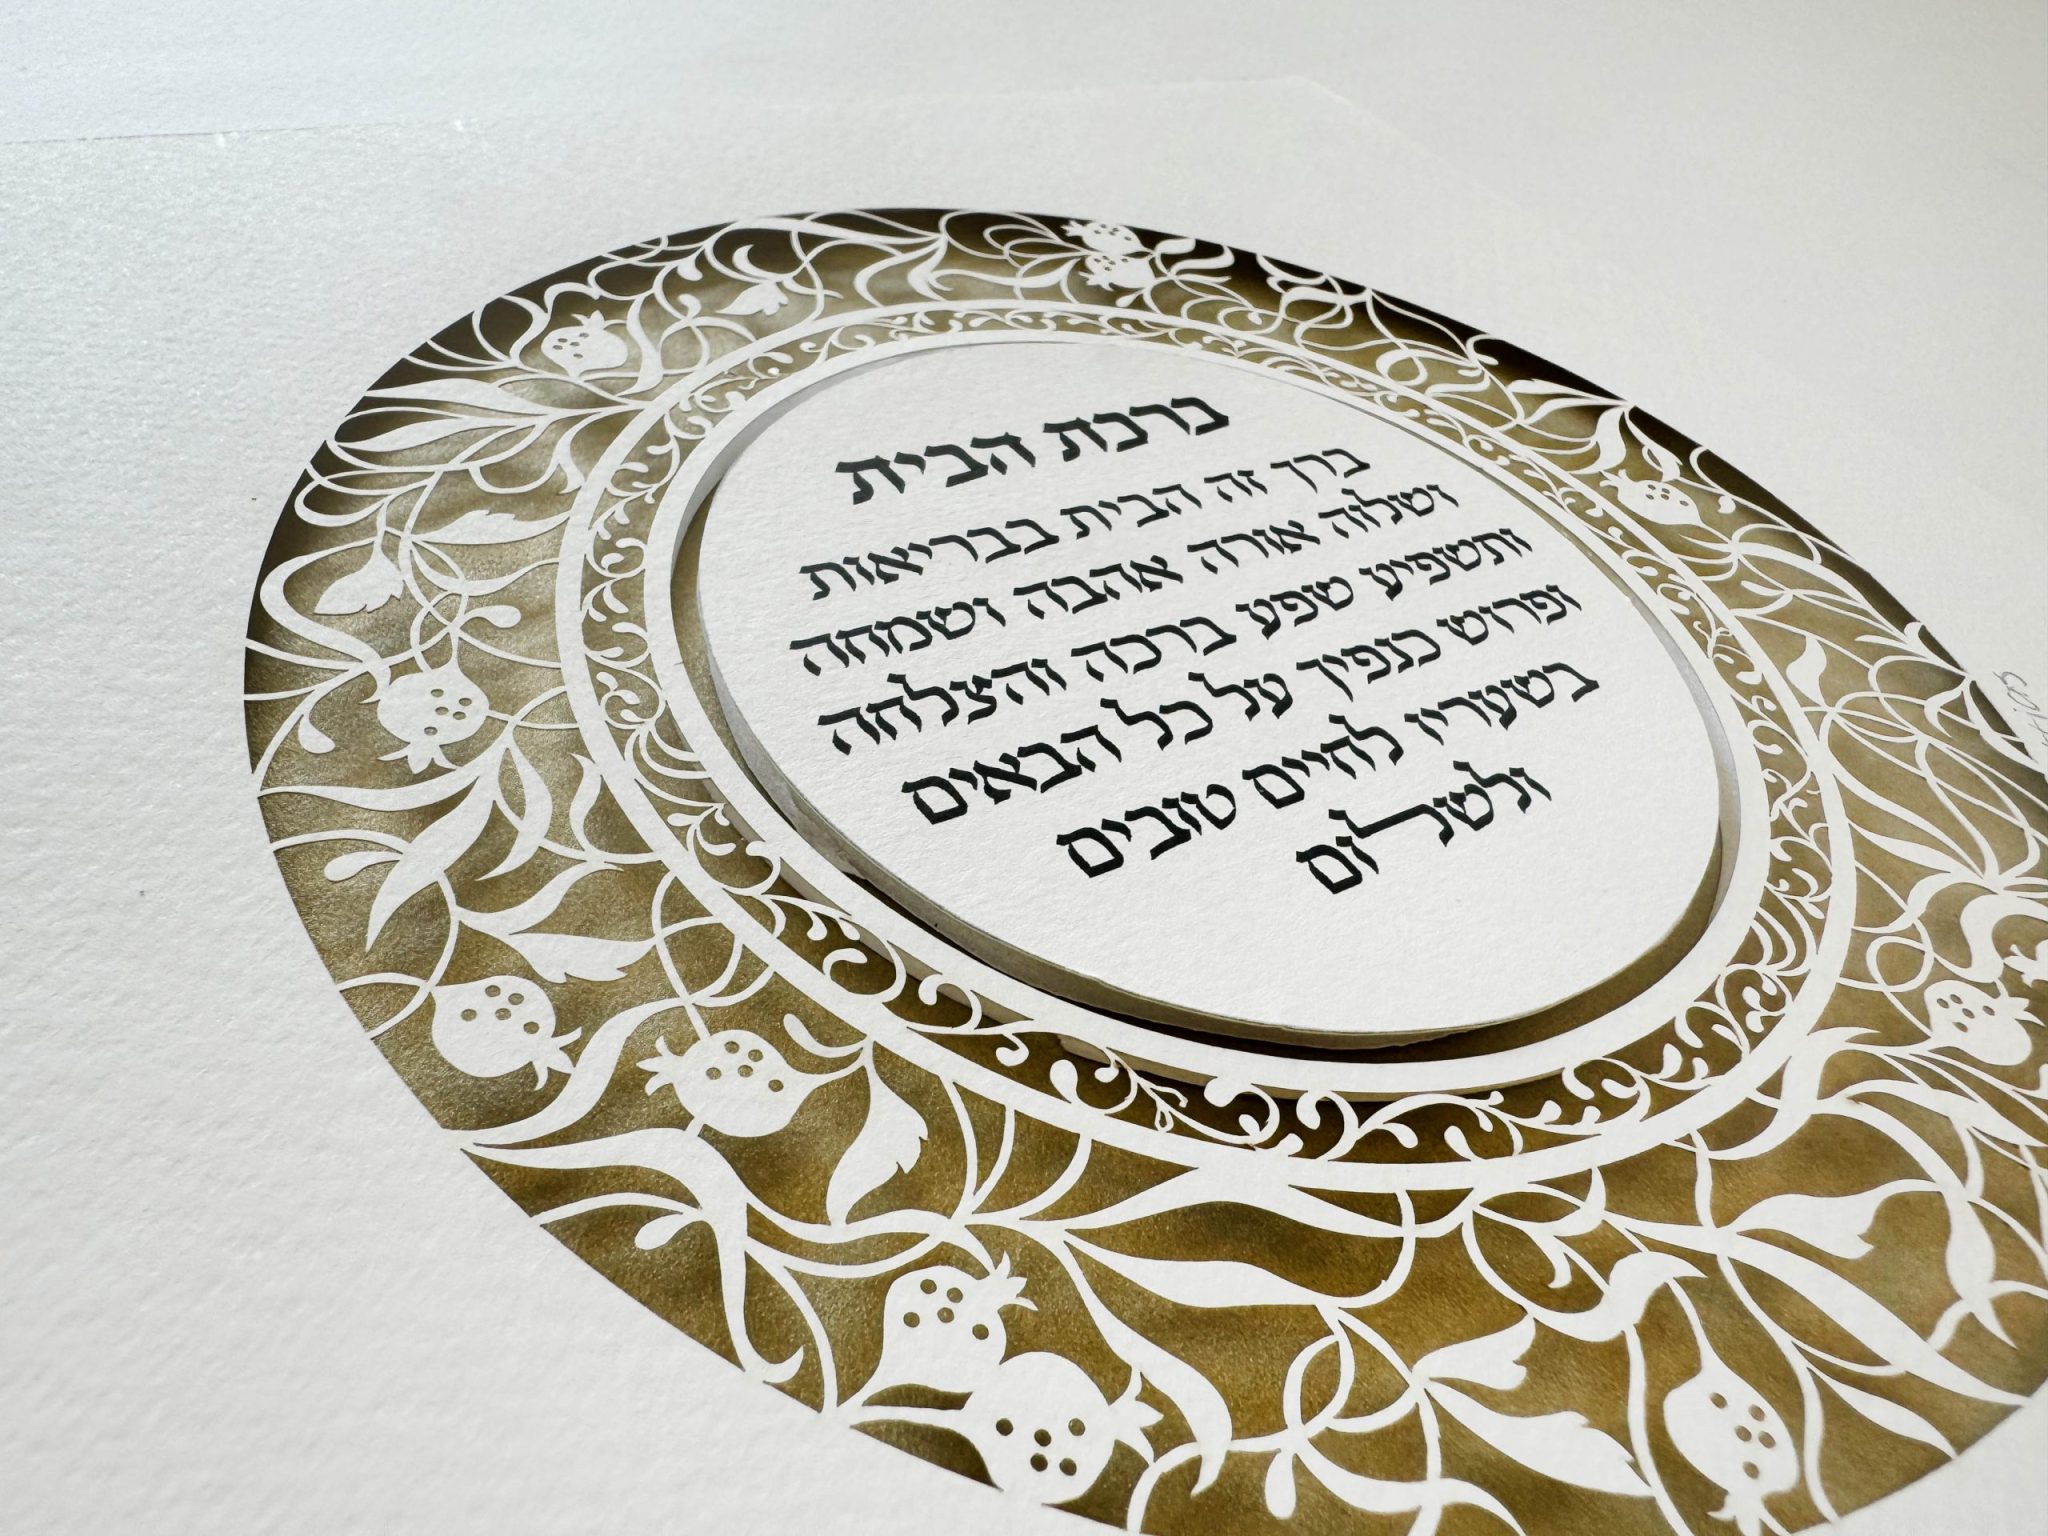 ברכת הבית
ברך זה הבית בבריאות
ושלוה אורה אהבה ושמחה
ותשפיע שפע ברכה והצלחה
ופרוש כנפיך על כל הבאים
בשעריו לחיים טובים
ולשלום